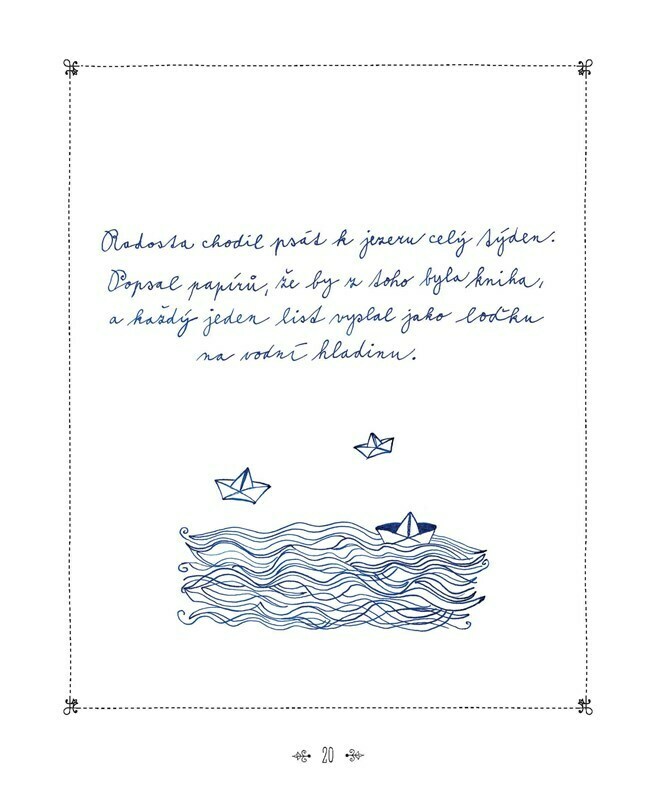 Radosta chodil psát k jezeru celý týden.
Popsal papírů, že by z toho byla kniha,
a každý jeden list vyslal jako loďku
na vodní hladinu.
20